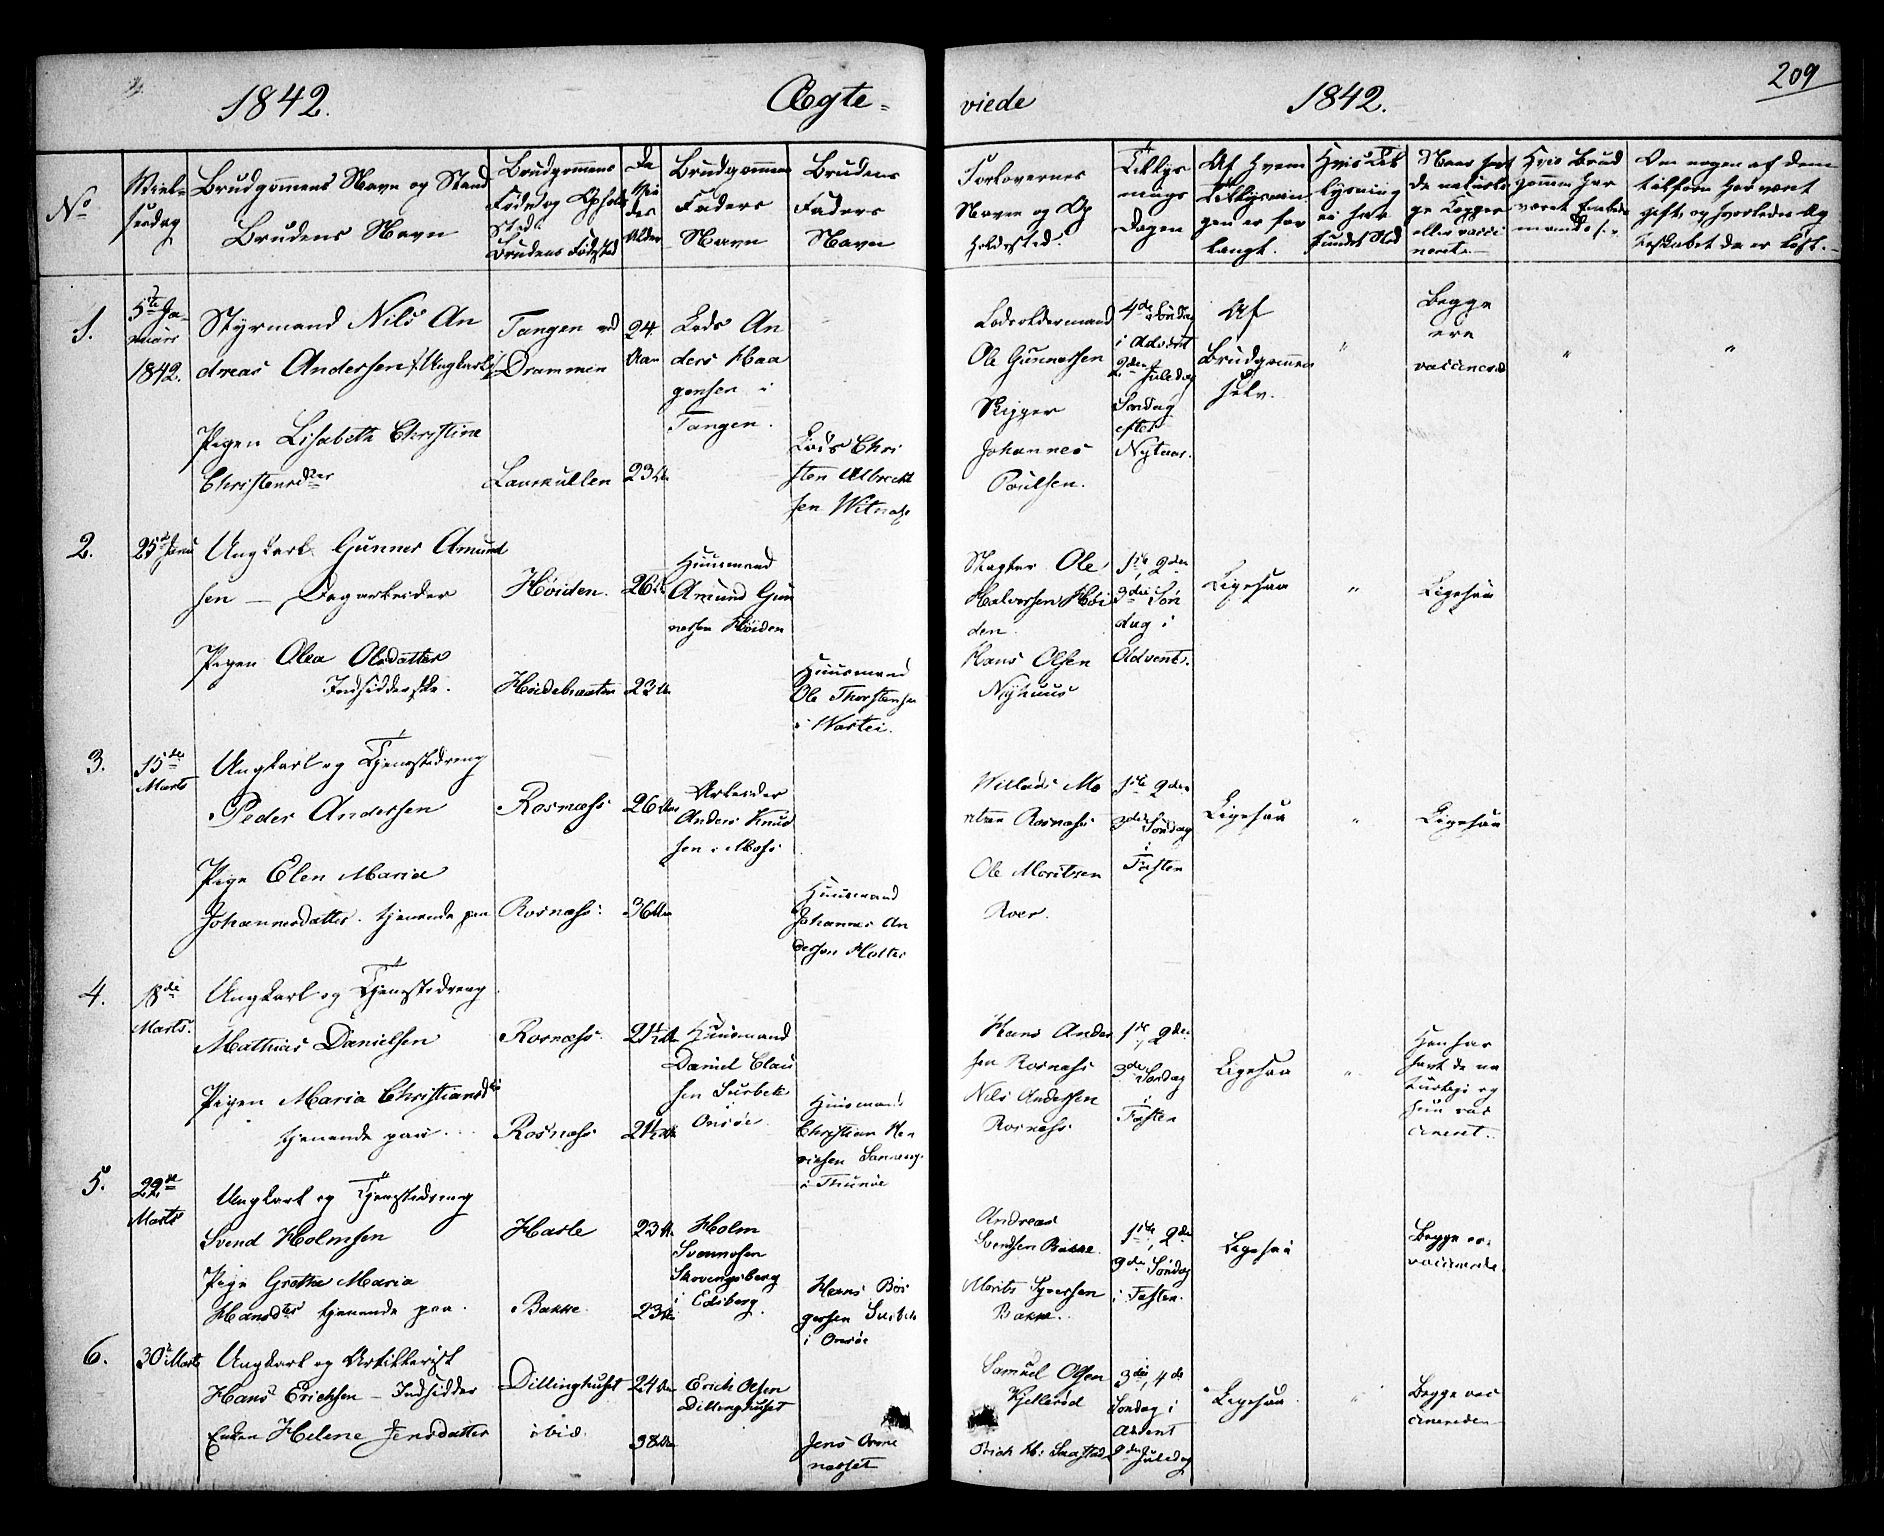 1842.
Ægte-
viede
1842.
209
No
Viel-
sesdag
Brudgommens Navn og Stand
Brudens Navn
Brudgommens
Føde og Opholds
Sted.
Brudens Fødested
De
Vie
des
Alder
Brudgommens
Faders
Navn
Brudens
Faders
Navn
Forlovernes
Navne og Op
holdested.
Tillys-
nings
Dagen
Af Hvem
Tillysnin
gen er for
langt.
Hvis Til
lysning
ei har
fundet Sted
De naturli
ge Kopper
eller vacci
nerede.
Hvis Brud
gommen har
været
Om nogen af dem
tilforn har været
gift, og hvorledes Æg
teskabet da er løst.
1.
5te Ja-
nuari
1842.
Styrmand Nils An
dreas Andersen, Ungkarl
Pigen Lisabeth Christine
Christensdter
Tangen ved
Drammen
Laurkullen
24
Aar
23 Aar
Lods An
ders Haa
gensen i
Tangen.
Lods Chri
sten Albrecht
sen Witnæs
Lodsoldermand
Ole Gunnersen
Skipper
Johannes
Poulsen.
4de Søndag
i Advent
2den Juledag
Søndag
efter
Nytaar.
Af
Brudgommen
selv.
"
Begge
ere
vaccinered
"
"
2.
25de Janu
Ungkarl Gunner Amund
sen — Dagarbeider
Pigen Olea Olsdatter
Indsidderske.
Høiden.
Høidebraaten
26 Aar
23 Aar
Huusmand
Amund Gun
nersen Høiden
Huusmand
Ole Thorstensen
i Wartei.
Slagter Ole
Halvorsen Høi
den.
Hans Olsen
Nyhuus
1ste, 2den
3die Søn
dag i
Advent.
Ligesaa
"
Ligesaa
3.
15de
Marts
Ungkarl og Tjenestedreng
Peder Andersen
Pige Elen Maria
Johannesdatter. tjenende paa
Rosnæss
Rosnæss.
26 Aar
36 Aar
Arbeider
Anders Knud
sen i Moss
Huusmand
Johannes An
dersen Holter
Willads Mo
Rosnæss
Ole Moritsen
Roer.
1ste 2den
3die Søndag
i
Fasten
Ligesaa
"
Ligesaa
4.
18de
Marts.
Ungkarl og Tjenestedreng
Mathias Danielsen
Pigen Maria Christiansdtr
tjenende paa
Rosnæss.
Rosnæss.
21½ Aar
21½ Aar
Huusmand
Daniel Clau
sen Surbek
Onsøe.
Huusmand
Christian Hen
richsen Sanæng.
i Thunøe
Hans Ander
sen Rosnæss
Nils Andersen
Rosnæss.
1ste, 2den
3die Søndag
i
Fasten
Ligesaa
"
Han har
havt de na
turlige og
hun vac
cineret.
5.
22de
Marts
Ungkarl og Tjenestedreng
Svend Holmsen
Pige Grethe Maria
Hansdtr tjenende paa.
Hasle
Bakke.
23 Aar
23 Aar
Holm
Svennosen
Skovengsberg
i Edsberg.
Hans Bør
gersen Surbek
i Onsøe
Andreas
Svendsen Bakke.
Morits Syversen
Bakke.
1ste, 2den
3die Søndag
i Fasten.
Ligesaa
Begge er
vaccinerede
6.
30te Marts
Ungkarl og Artillerist
Hans Erichsen – Indsidder
Enken Helene Jensdatter
Dillinghuset
ibid.
24 Aar
38 Aar
Erich Olsen
Dillinghuset
Jens Orme
næsset
Samuel Olsen
Kjellerød
Erich
3die, 4de
Søndag i
Advent
2den Juledag
Ligesaa.
"
Begge vac
cinereden